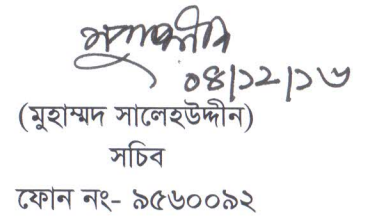 ০৪/১২/১৬
(মুহাম্মদ সালেহউদ্দীন)
সচিব
ফোন নং- ৯৫৬০০৯২